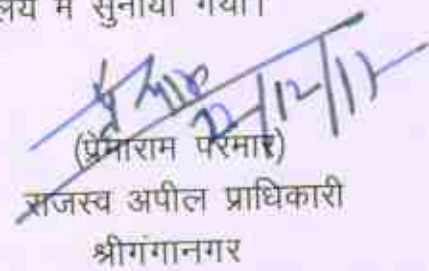 लय में सुनाया गया।
22/12/17
(प्रेमाराम परमार)
राजस्व अपील प्राधिकारी
श्रीगंगानगर